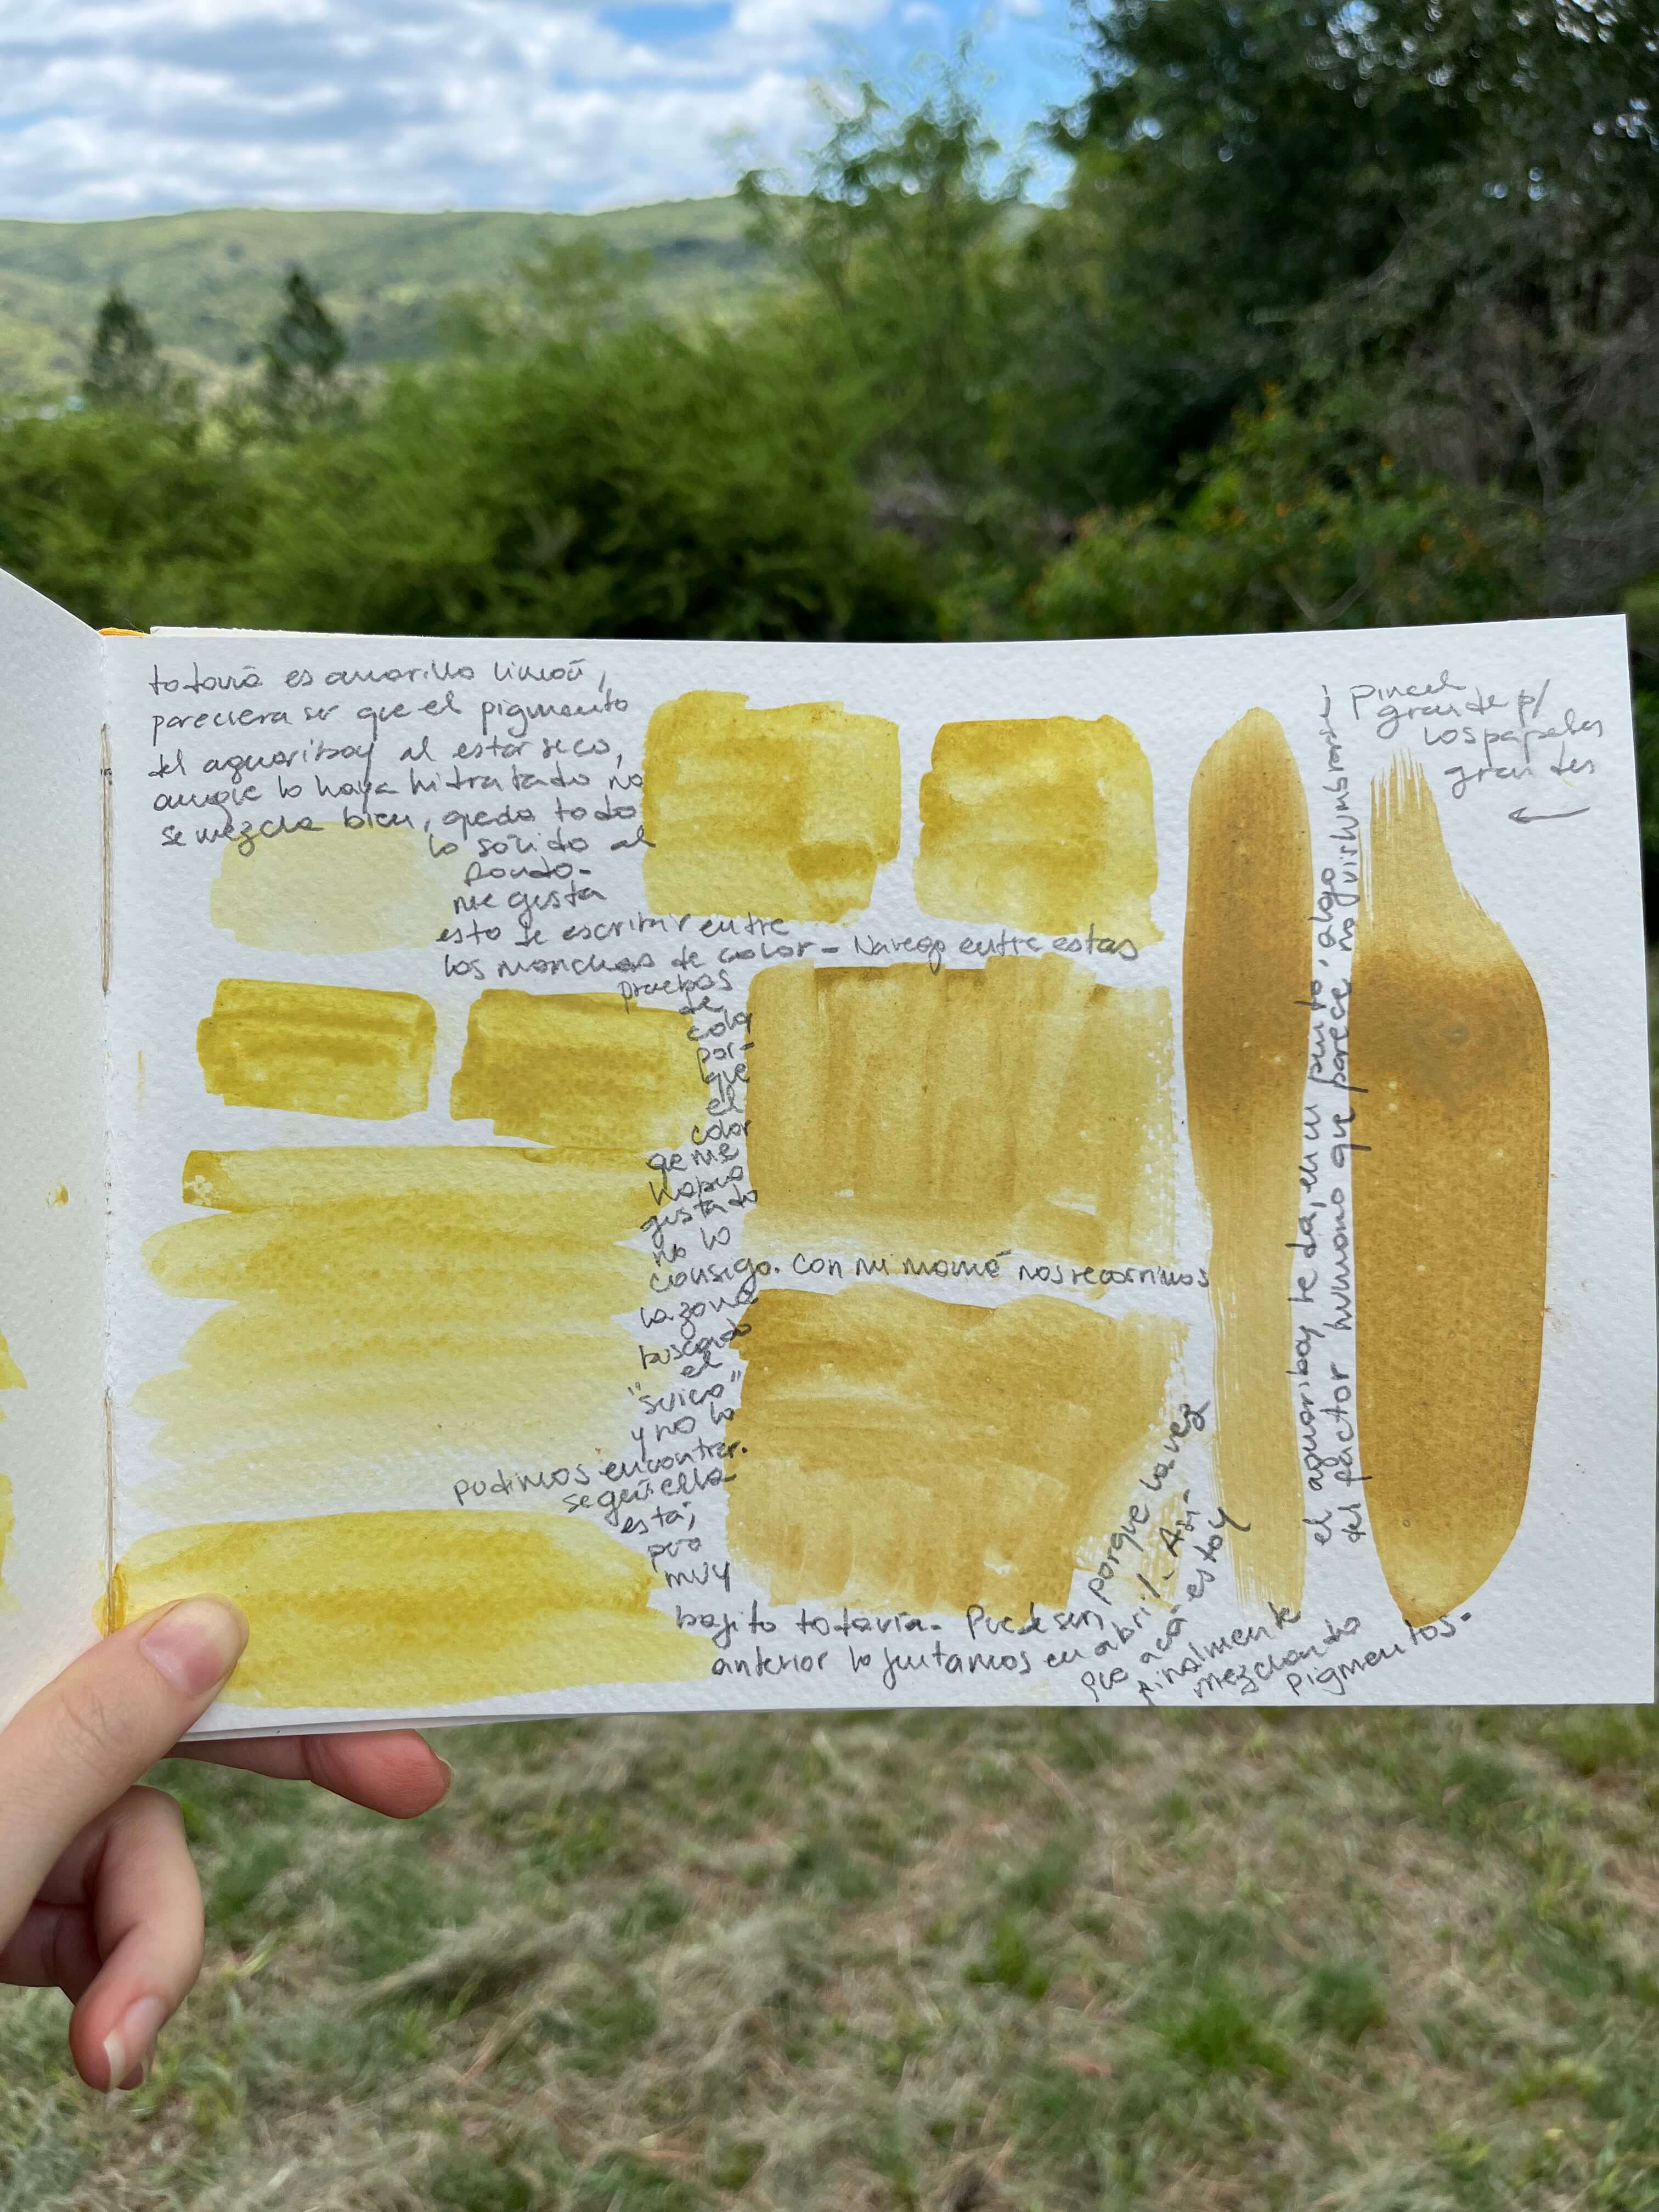 todavía es amarillo limón,
pareciera ser que el pigmento
del aguaribay al estar seco,
aunque lo haya hidratado no
se mezcla bien, queda todo
lo sólido al
fondo-
me gusta
esto de escribir entre
los manchas de color- Navego entre estas
pruebas
de
color
por-
que
el
color
que me
había
gustado
no lo
consigo. Con mi mamá nos recorrimos
la zona
buscando
el
"suico"
y no lo
pudimos encontrar.
según ella
está;
pero
muy
bajito todavía- Puede ser, porque la vez
anterior lo juntamos en abril- Así-
que acá estoy
finalmente
mezclando
pigmentos-
el aguaribay te da, en un punto, algo
del factor humano que parece no vislumbrarse;
pincel
grande p/
los papeles
grandes
←